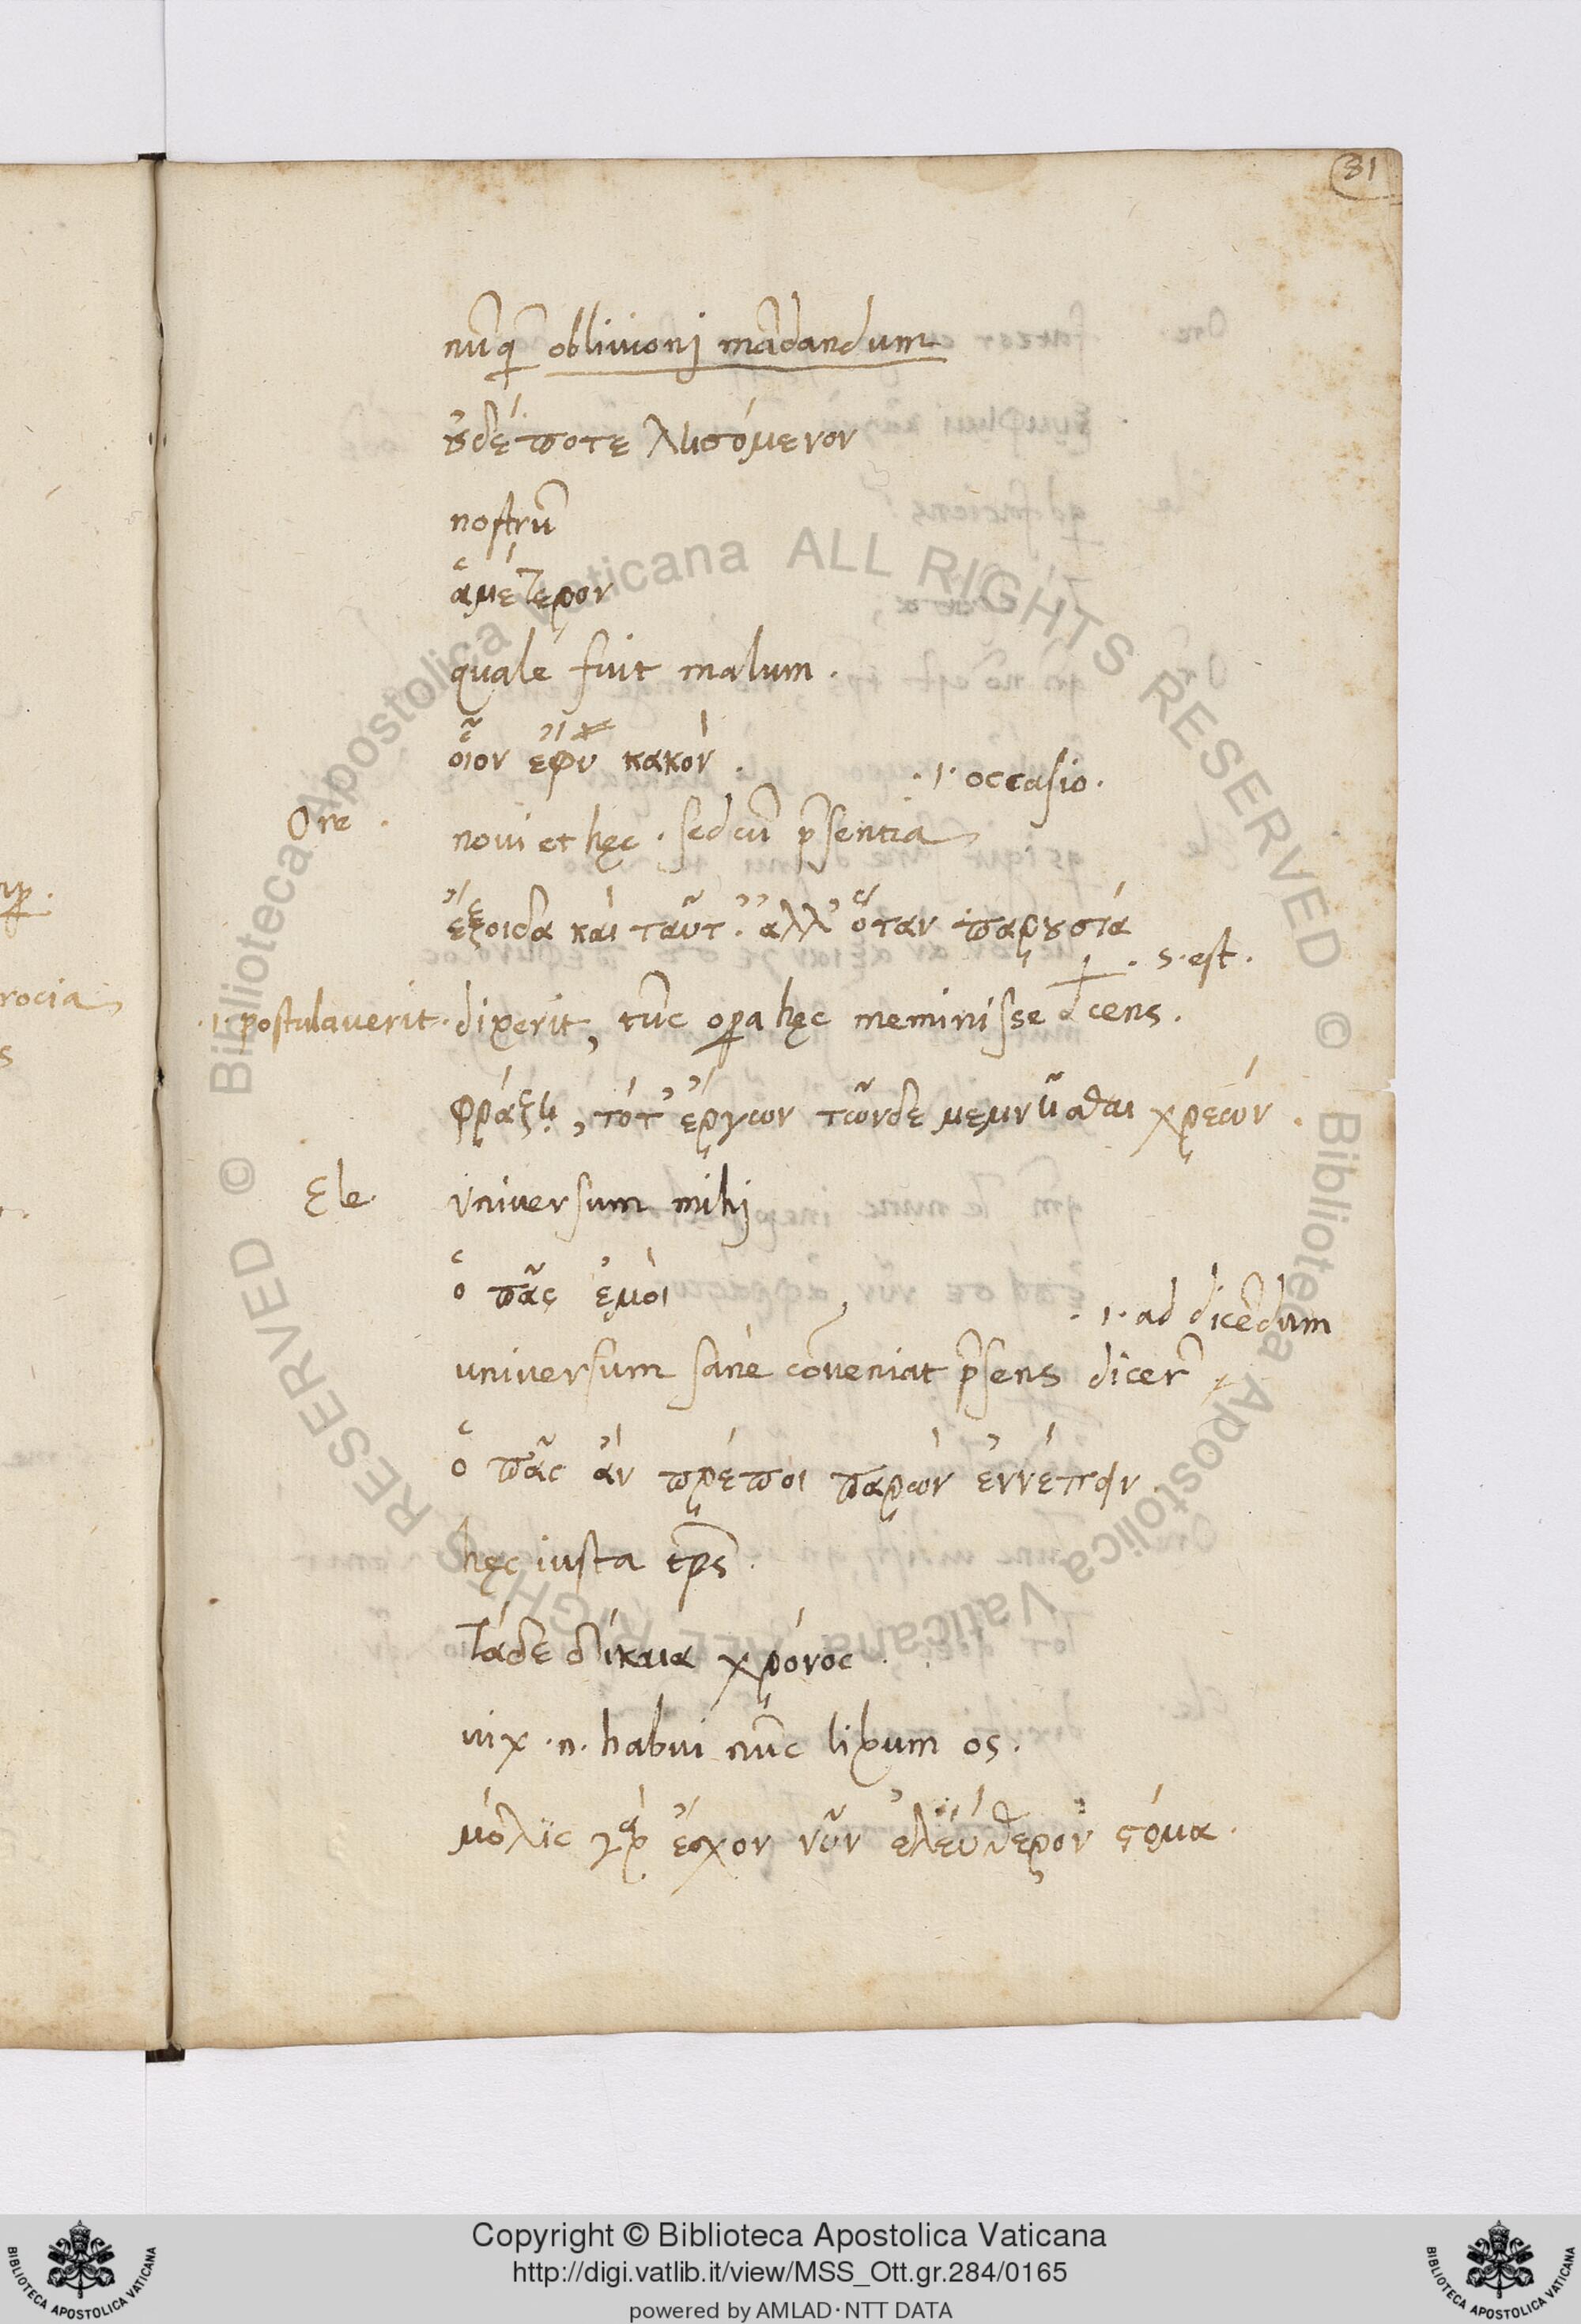 81
nūq̄ obliuionj mādandum
οὐδέποτε λησόμενον
nostrū
ἁμέτερον
quale fuit malum.
οἷον ἔφυ κακόν.
.i. occasio.
Ore. noui et hęc. sed cū p̄sentia
ἔξοιδα καὶ ταῦτ'. ἀλλ' ὅταν παρουσία
.s. est.
.i. postulauerit. dixerit, tūc oꝑa hęc meminisse dcens.
φράζῃ, τότ' ἔργων τῶνδε μεμνῆσθαι χρεών.
Ele. Vniuersum mihj
ὁ πᾶς ἐμοὶ
.i. ad dicēdum
uniuersum sane cōueniat p̄sens dicer̄
ὁ πᾶς ἂν πρέποι παρὼν ἐννέπειν.
hęc iusta tp̄s.
τάδε δίκαια χρόνος.
uix .n. habui nūc libum os.
μόλϊς γὰρ ἔσχον νῦν ἐλεύθερον στόμα.
rocia
s
Copyright © Biblioteca Apostolica Vaticana
http://digi.vatlib.it/view/MSS_Ott.gr.284/0165
powered by AMLAD·NTT DATA
BIBLIOTECA APOSTOLICA VATICANA
BIBLIOTECA APOSTOLICA VATICANA
© Biblioteca Apostolica Vaticana ALL RIGHTS RESERVED
© Biblioteca Apostolica Vaticana ALL RIGHTS RESERVED